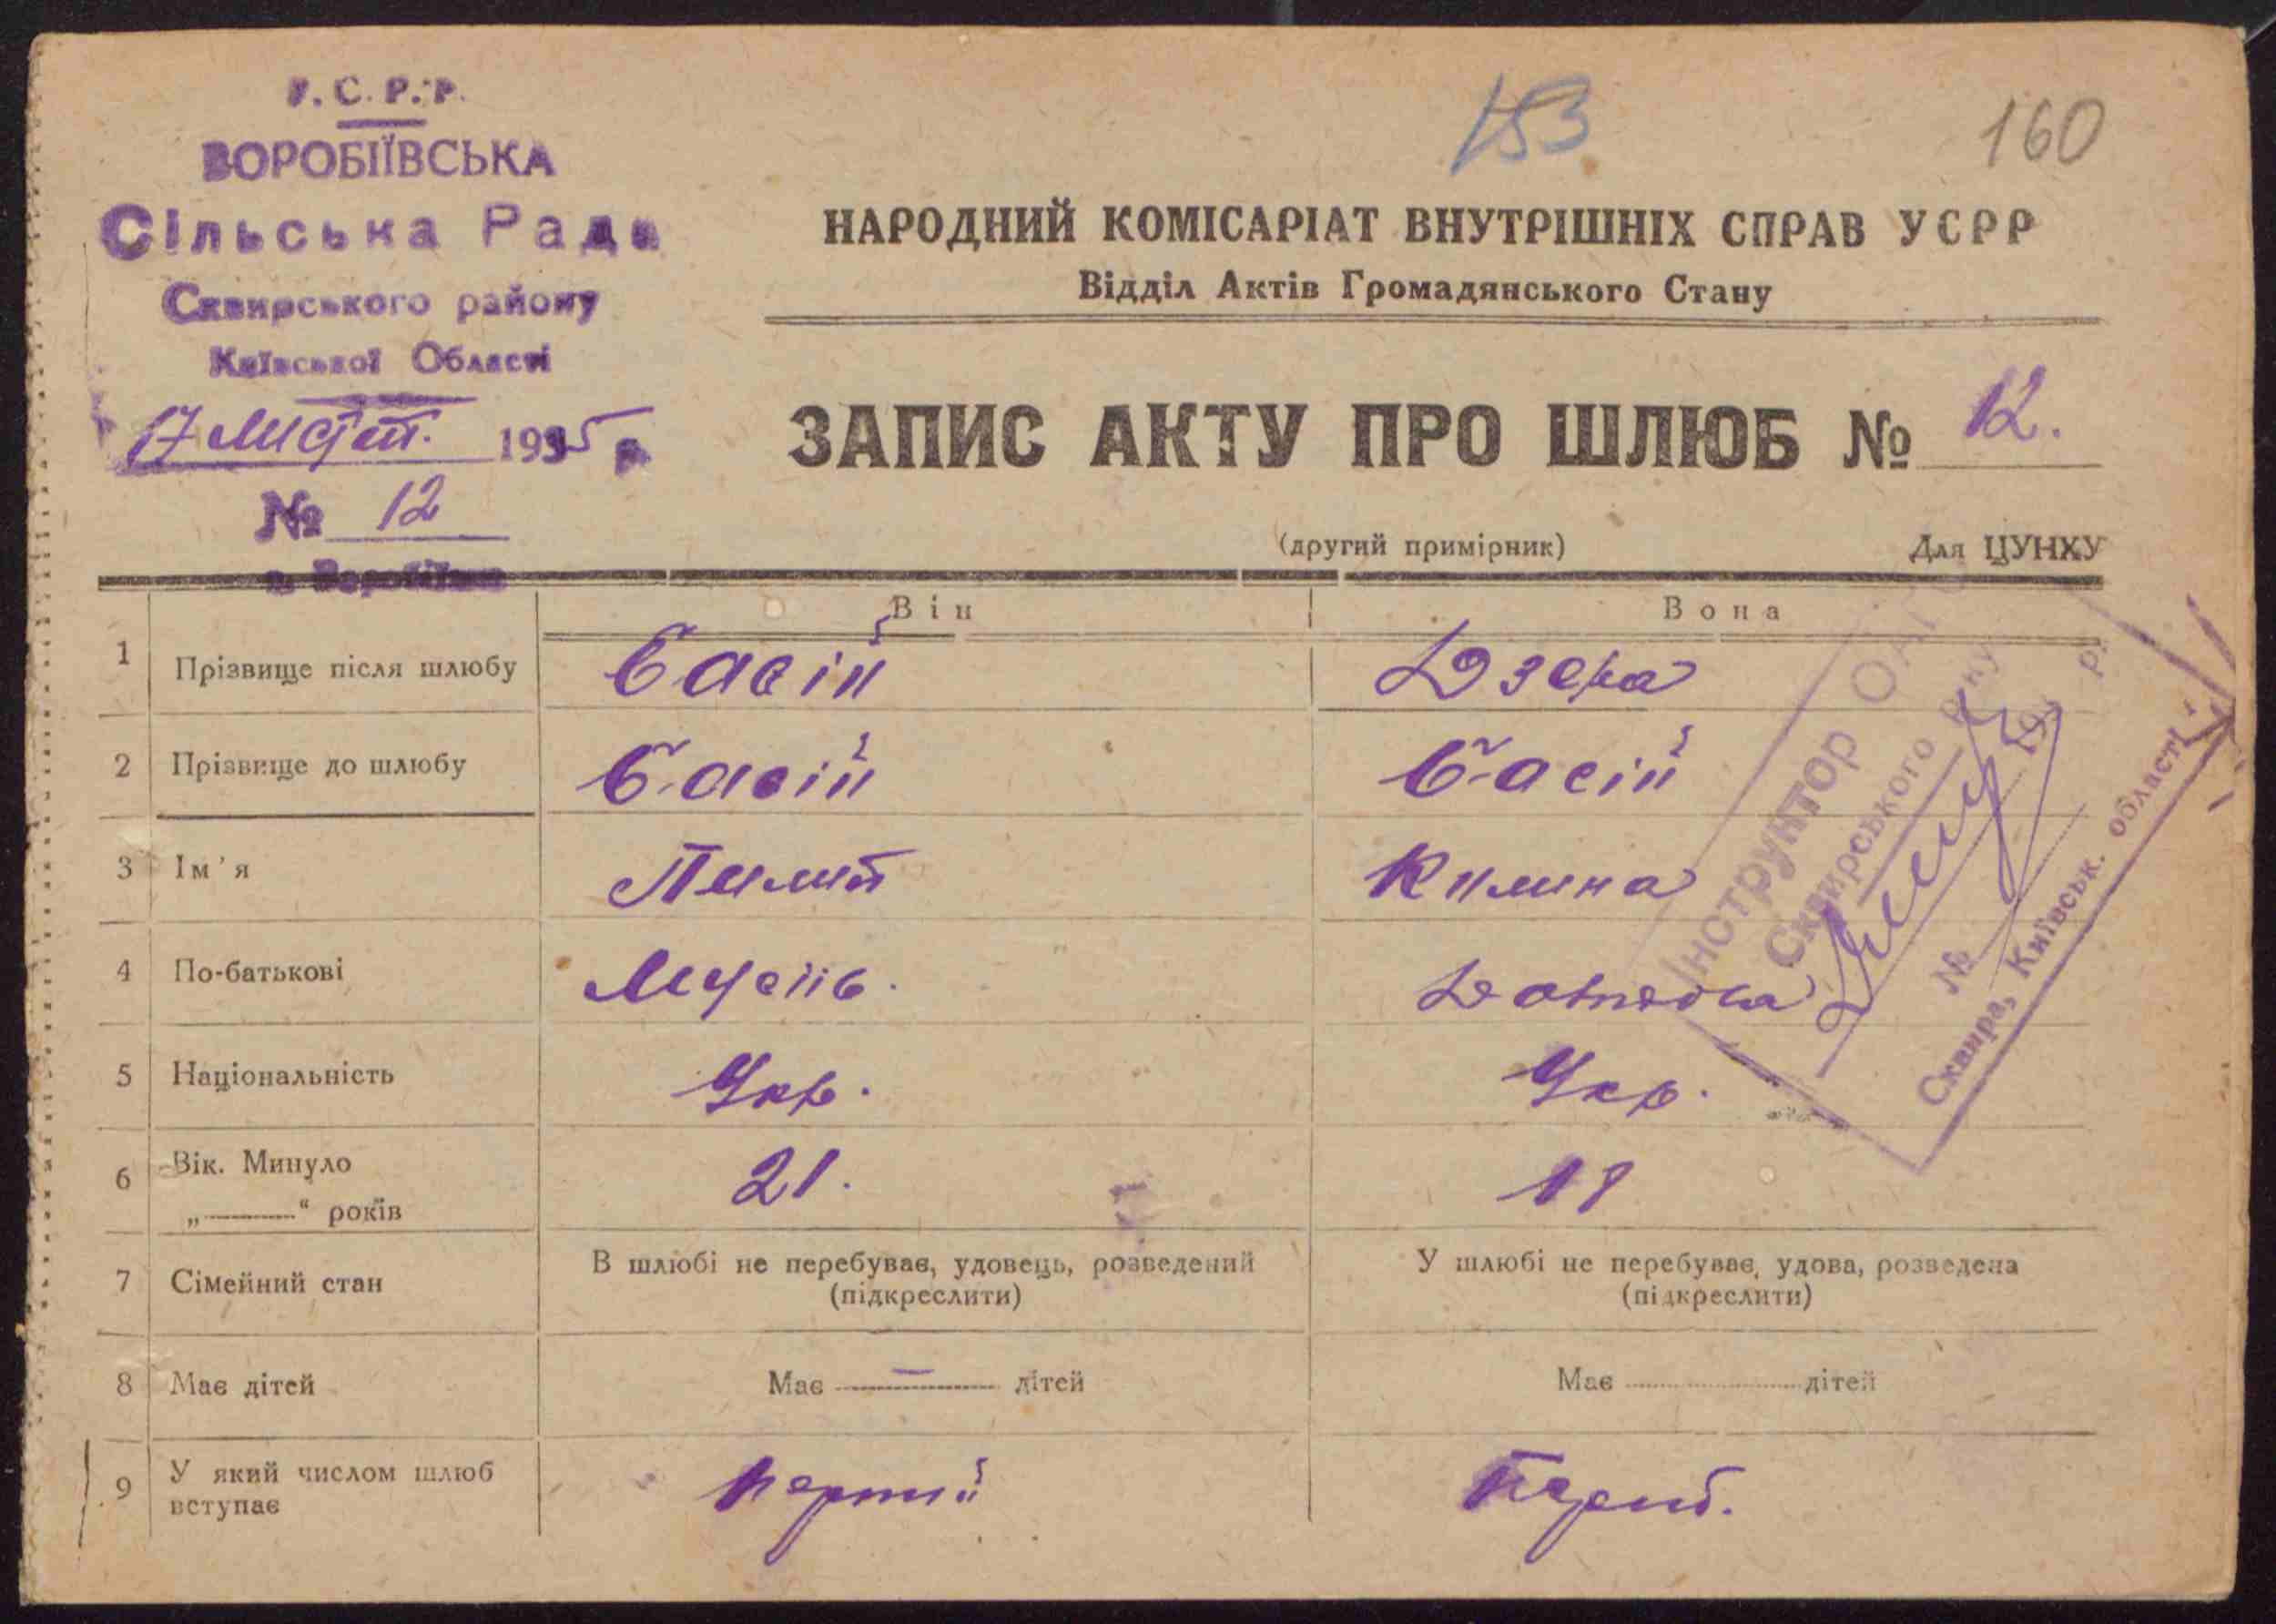 У.С.Р.Р.
ВОРОБІЇВСЬКА
Сільська Рада
Сквирського району
Київської Області
17 листоп. 1935 р.
№ 12
с. Воробіївка
153
160
НАРОДНИЙ КОМІСАРІАТ ВНУТРІШНІХ СПРАВ УСРР
Відділ Актів Громадянського Стану
ЗАПИС АКТУ ПРО ШЛЮБ № 12.
(другий примірник) Для ЦУНХУ
Він Вона
1 Прізвище після шлюбу Басій Дзера
2 Прізвище до шлюбу Басій Басій
3 Ім'я Пимип Килина
4 По-батькові
5 Національність Укр. Укр.
6 Вік. Минуло 21. 18
„———“ років
7 Сімейний стан В шлюбі не перебуває, удовець, розведений У шлюбі не перебуває, удова, розведена
(підкреслити) (підкреслити)
8 Має дітей Має — дітей Має дітей
9 У який числом шлюб перший перший.
вступає
Інструктор ОАГС
Сквирського р-ну
193 р.
№
Сквира, Київськ. області